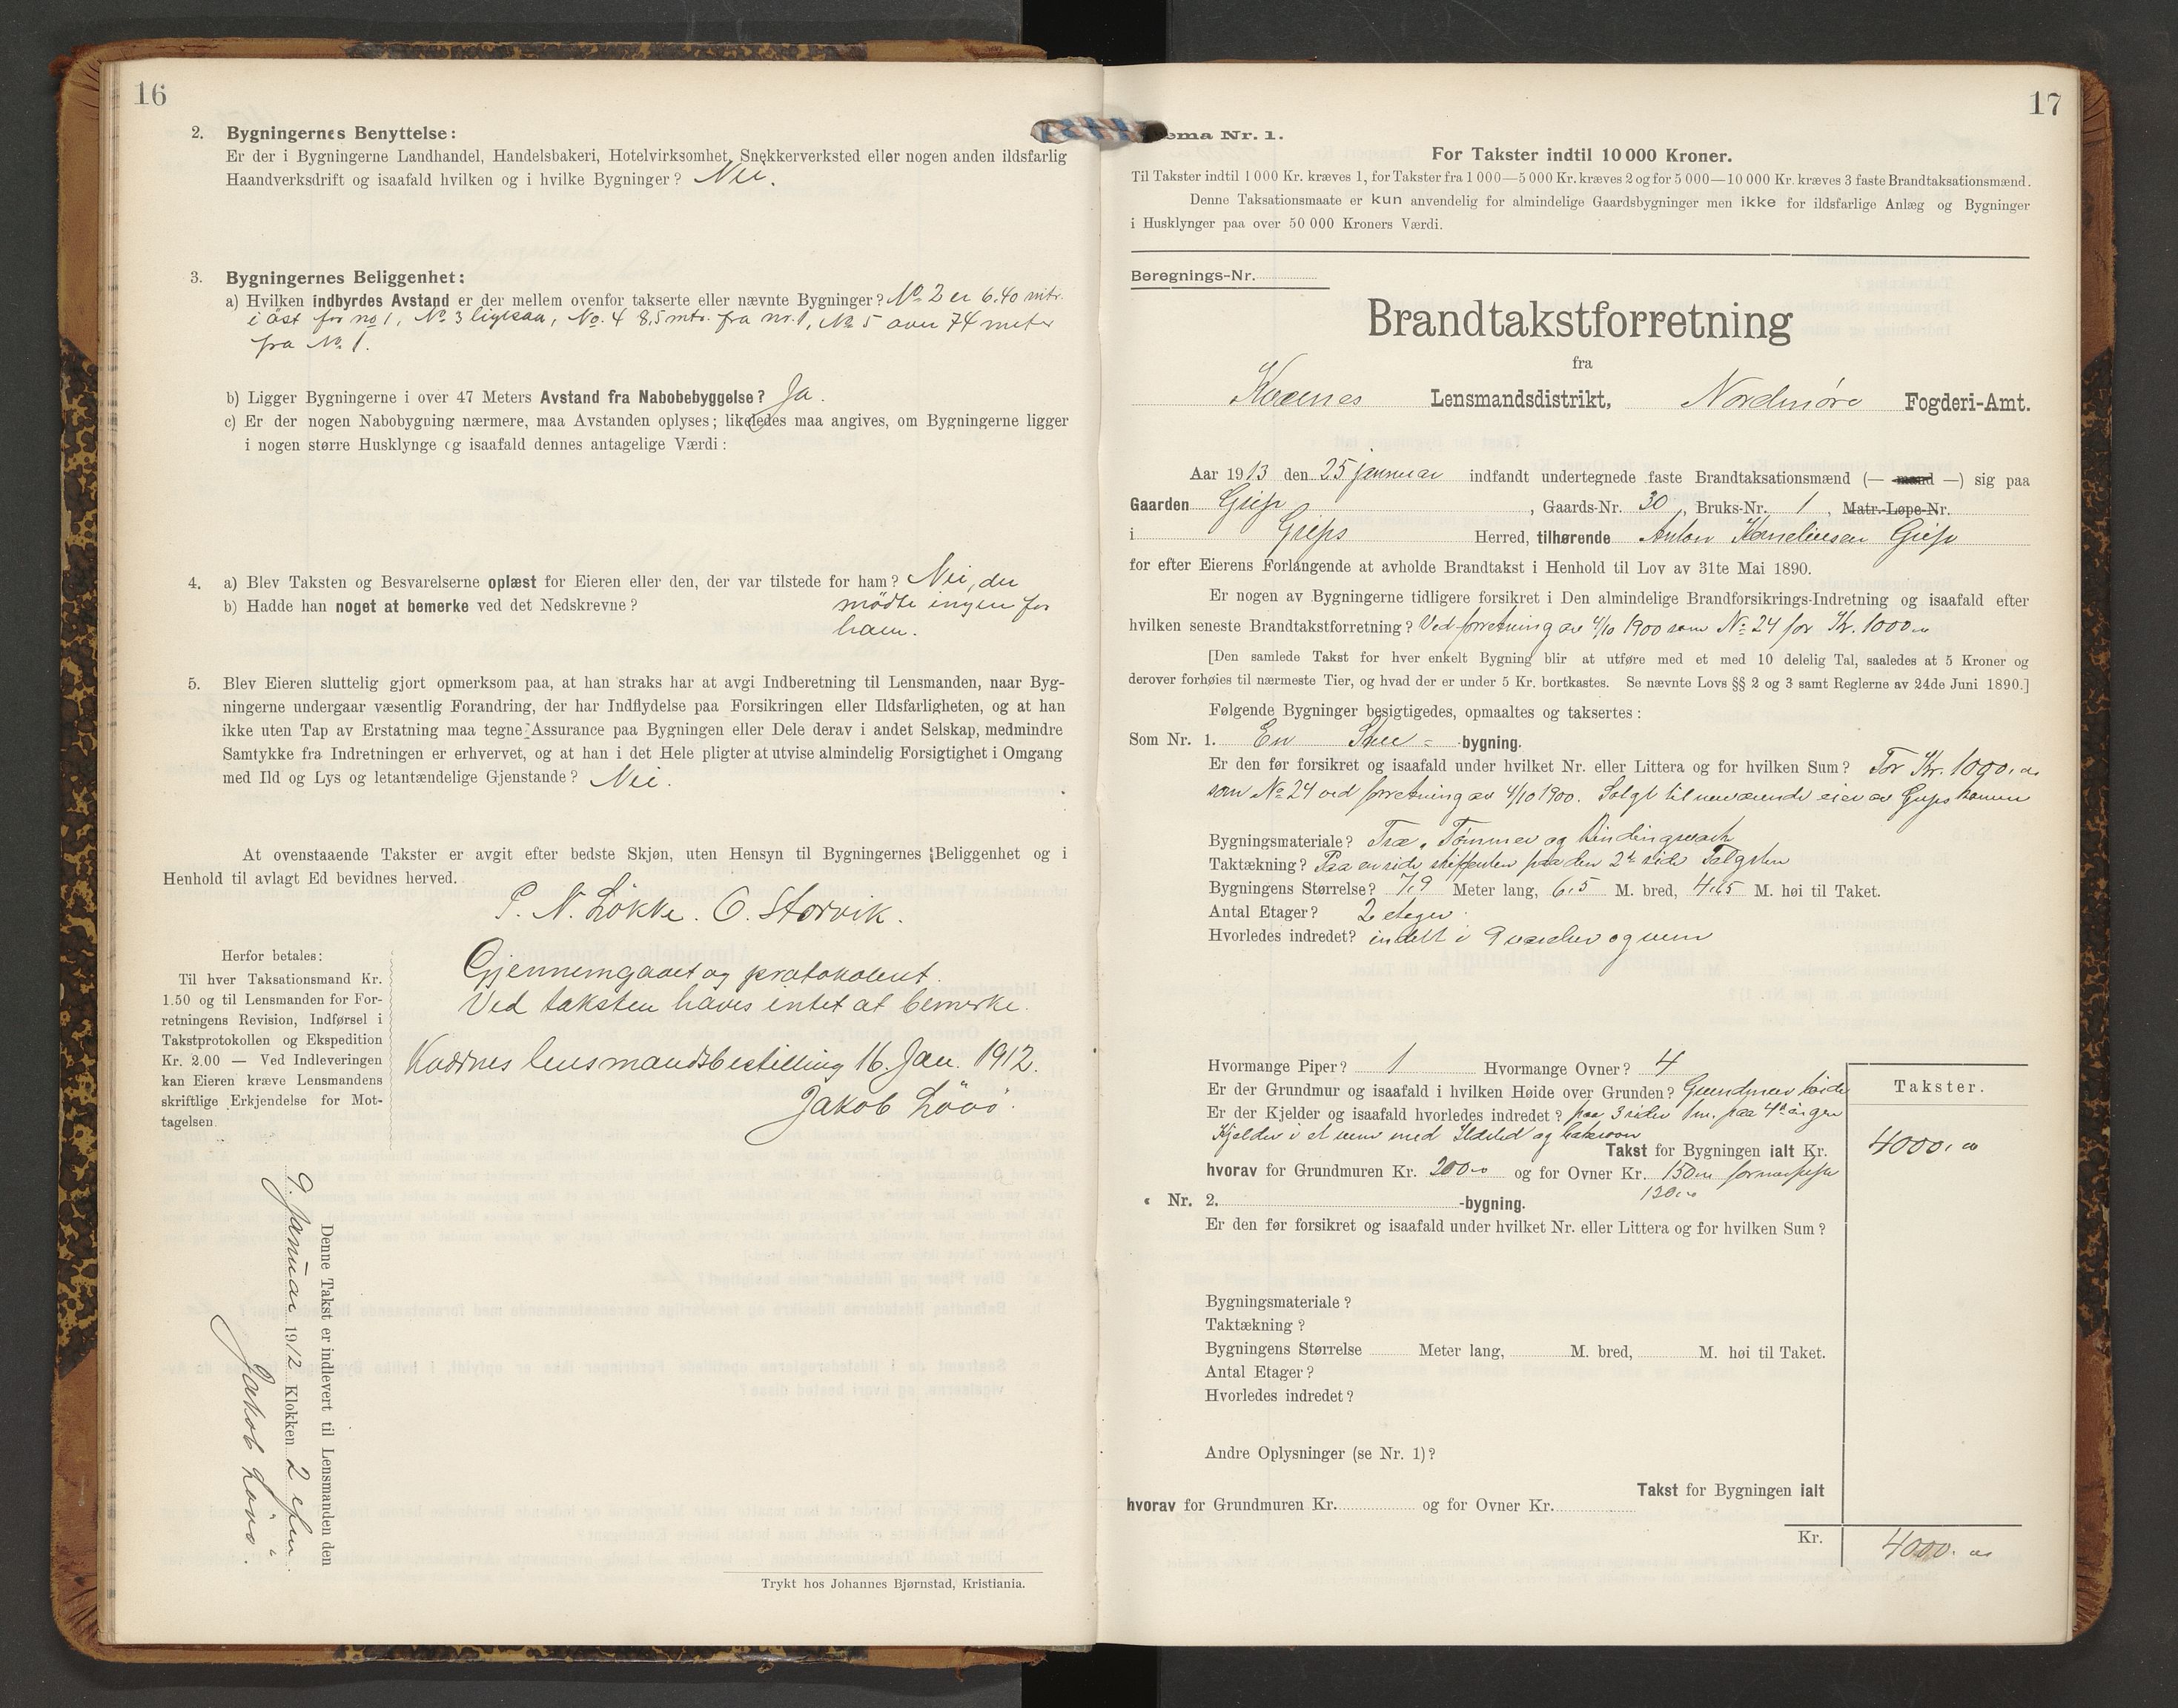 16
2. Bygningernes Benyttelse:
Er der i Bygningerne Landhandel, Handelsbakeri, Hotelvirksomhet, Snekkerverksted eller nogen anden ildsfarlig
Haandverksdrift og isaafald hvilken og i hvilke Bygninger? Nei.
3. Bygningernes Beliggenhet:
a) Hvilken indbyrdes Avstand er der mellem ovenfor takserte eller nævnte Bygninger? No. 2 er 6.40 mtr.
i öst for no 1, No. 3 ligesaa, No. 4 8,5 mtr. fra nr. 1, No 5 over 74 meter
fra No. 1.
b) Ligger Bygningerne i over 47 Meters Avstand fra Nabobebyggelse? Ja.
c) Er der nogen Nabobygning nærmere, maa Avstanden oplyses; likeledes maa angives, om Bygningerne ligger
i nogen større Husklynge og isaafald dennes antagelige Værdi:
4. a) Blev Taksten og Besvarelserne oplæst for Eieren eller den, der var tilstede for ham? Nei, der
b) Hadde han noget at bemerke ved det Nedskrevne? mödte ingen for
ham.
5. Blev Eieren sluttelig gjort opmerksom paa, at han straks har at avgi Indberetning til Lensmanden, naar Byg-
ningerne undergaar væsentlig Forandring, der har Indflydelse paa Forsikringen eller Ildsfarligheten, og at han
ikke uten Tap av Erstatning maa tegne Assurance paa Bygningen eller Dele derav i andet Selskap, medmindre
Samtykke fra Indretningen er erhvervet, og at han i det Hele pligter at utvise almindelig Forsigtighet i Omgang
med Ild og Lys og letantændelige Gjenstande? Nei.
At ovenstaaende Takster er avgit efter bedste Skjøn, uten Hensyn til Bygningernes Beliggenhet og i
Henhold til avlagt Ed bevidnes herved.
P. N. Lökke. O. Storvik.
Herfor betales:
Til hver Taksationsmand Kr.
1.50 og til Lensmanden for For-
retningens Revision, Indførsel i
Takstprotokollen og Ekspedition
Kr. 2.00 — Ved Indleveringen
kan Eieren kræve Lensmandens
skriftlige Erkjendelse for Mot-
tagelsen.
Gjennemgaaet og protokolert.
Ved taksten haves intet at bemerke.
Kvernes lensmandsbestilling 16. Jan. 1912.
Jakob Lövö.
Denne Takst er indlevert til Lensmanden den
9. Januar 1912 Klokken 2 efm.
Jakob Lövö.
Trykt hos Johannes Bjørnstad, Kristiania.
17
ema Nr. 1.
For Takster indtil 10 000 Kroner.
Til Takster indtil 1 000 Kr. kræves 1, for Takster fra 1 000—5 000 Kr. kræves 2 og for 5 000—10 000 Kr. kræves 3 faste Brandtaksationsmænd.
Denne Taksationsmaate er kun anvendelig for almindelige Gaardsbygninger men ikke for ildsfarlige Anlæg og Bygninger
i Husklynger paa over 50 000 Kroners Værdi.
Beregnings-Nr.
Brandtakstforretning
fra
Kvernes Lensmandsdistrikt, Nordmøre Fogderi-Amt.
Aar 1913 den 25 januar indfandt undertegnede faste Brandtaksationsmænd (— mand —) sig paa
Gaarden Grip, Gaards-Nr. 30, Bruks-Nr. 1, Matr.-Løpe-Nr.
i Grips Herred, tilhørende Anton Korneliusen Grip
for efter Eierens Forlangende at avholde Brandtakst i Henhold til Lov av 31te Mai 1890.
Er nogen av Bygningerne tidligere forsikret i Den almindelige Brandforsikrings-Indretning og isaafald efter
hvilken seneste Brandtakstforretning? Ved forretning av 4/10 1900 som No 24 for Kr. 1000.00
[Den samlede Takst for hver enkelt Bygning blir at utføre med et med 10 delelig Tal, saaledes at 5 Kroner og
derover forhøies til nærmeste Tier, og hvad der er under 5 Kr. bortkastes. Se nævnte Lovs §§ 2 og 3 samt Reglerne av 24de Juni 1890.]
Følgende Bygninger besigtigedes, opmaaltes og taksertes:
Som Nr. 1. En Stue- -bygning.
Er den før forsikret og isaafald under hvilket Nr. eller Littera og for hvilken Sum? For Kr. 1000.00
som No 24 ved forretning av 4/10 1900. Solgt til nuværende eier av Grips
Bygningsmateriale? Træ, Tømmer og bindingsverk
Taktækning? Paa en side skiffertæk paa den 2de side Talgsten
Bygningens Størrelse? 7,9 Meter lang, 6,5 M. bred, 4,65 M. høi til Taket.
Antal Etager? 2 etager
Hvorledes indredet? indelt i 9 værelser og rum
Hvormange Piper? 1 Hvormange Ovner? 4
Er der Grundmur og isaafald i hvilken Høide over Grunden? Grundmur høide
Er der Kjelder og isaafald hvorledes indredet? paa 3 sider 1 m. paa 4de
Kjelder i et rum med Ildsted og bakerovn
Takst for Bygningen ialt Kr.
hvorav for Grundmuren Kr. 200.00 og for Ovner Kr. 150.00
120.00
Takster.
4000.00
« Nr. 2. -bygning.
Er den før forsikret og isaafald under hvilket Nr. eller Littera og for hvilken Sum?
Bygningsmateriale?
Taktækning?
Bygningens Størrelse Meter lang, M. bred, M. høi til Taket.
Antal Etager?
Hvorledes indredet?
Andre Oplysninger (se Nr. 1)?
Takst for Bygningen ialt
hvorav for Grundmuren Kr. og for Ovner Kr.
Kr. 4000.00